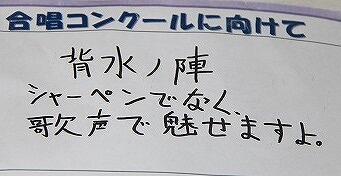 合唱コンクールに向けて
背水ノ陣
シャーペンでなく、
歌声で魅せますよ。